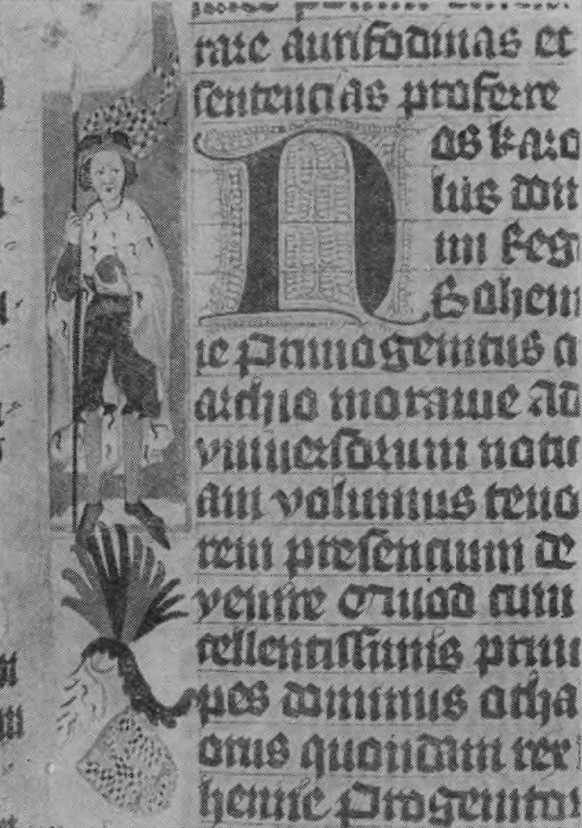 rare aurifodinas et
sentencias proferre
Nos karo
lus domi
ni Regis
Bohem
ie Primogenitus
archio moravie ad
vniversorum notici
am volumus teno
rem presencium de
venire Quod cum
cellentissimis prin
pes dominus otha
orus quondam rex
hemie Progenitor